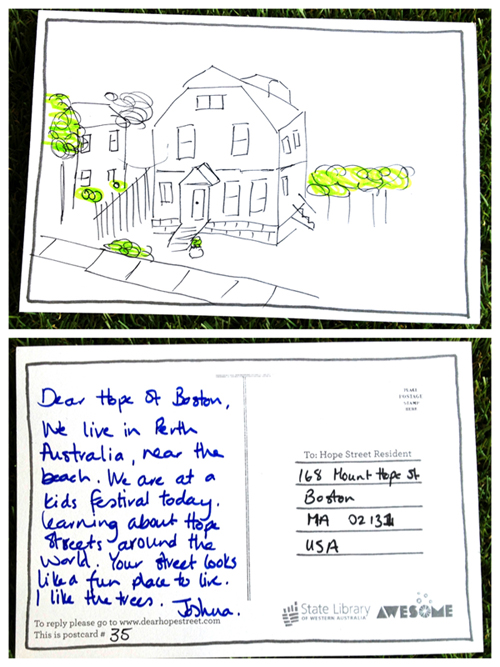 Dear Hope St Boston,
We live in Perth
Australia, near the
beach. We are at a
kids festival today.
Learning about Hope
Streets around the
World. Your street looks
like a fun place to live.
I like the trees. Joshua.
To reply please go to www.dearhopestreet.com
This is postcard # 35
PLACE
POSTAGE
STAMP
HERE
To: Hope Street Resident
168 Mount Hope St
Boston
MA 02131
USA
State Library
OF WESTERN AUSTRALIA
AWESOME